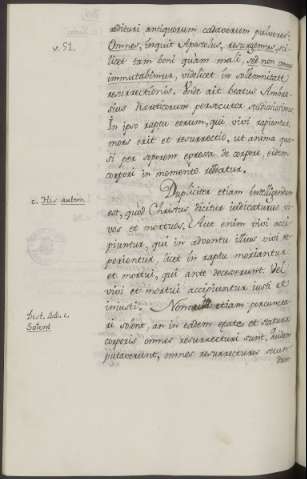 redituri antiquorum cadaverum pulveres:
v. 51. Omnes, inquit Apostolus, resurgemus, sci-
licet tam boni quam mali, sed non omnes
immutabimur, videlicet in solemnitate
resurrectionis. Unde ait beatus Ambro-
sius haereticorum persecutor studiosissimus:
In ipso raptu eorum, qui vivi rapiantur,
mors erit et resurrectio, ut anima qua-
si per soporem egressa de corpore, eidem
corpori in momento reddatur.
Dupliciter etiam intelligendum
c. His autem est, quod Christus dicitur judicaturus vi-
vos et mortuos. Aut enim vivi acci-
piuntur, qui in adventu illius vivi re-
perientur, licet in raptu moriantur
et mortui, qui ante decesserunt. Vel
vivi et mortui accipiuntur justi et
injusti. Nonnulli etiam percuncta-
Solent ri solent, an in eadem aetate et statura
corporis omnes resurrecturi sunt. Quidam
putaverunt, omnes resurrecturos secun-
dum